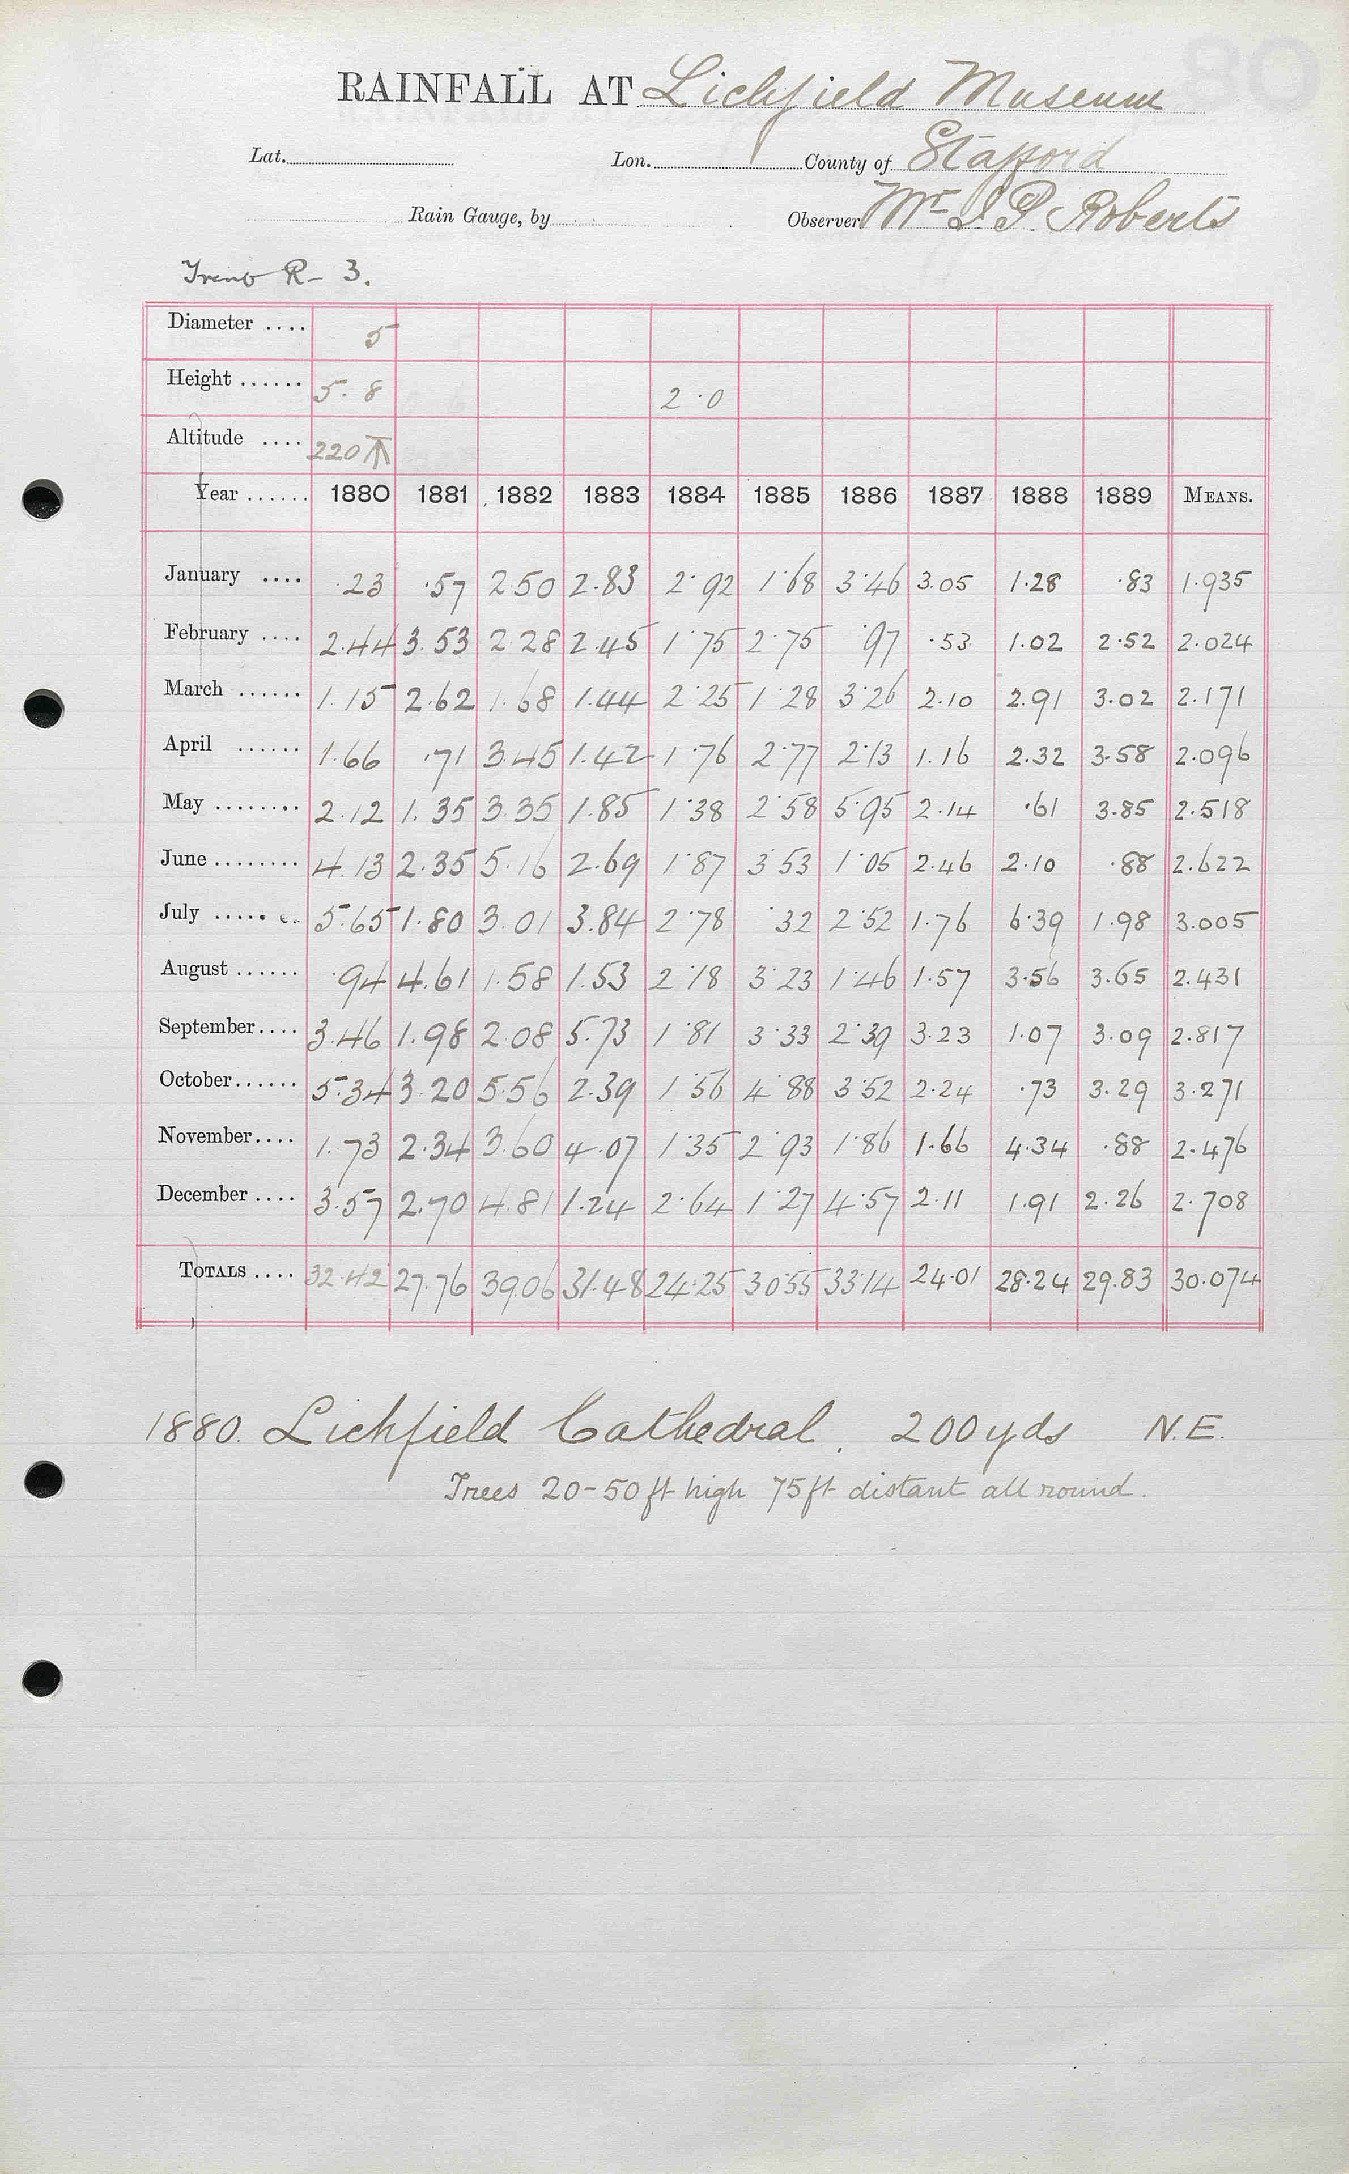 RAINFALL AT Lichfield Museum
Lat. Lon. County of Stafford
Rain Gauge, by Observer Mr. J. P. Roberts
Trent R- 3.
Diameter .... 5
Height ...... 5.8 2.0
Altitude .... 220 T
Year ...... 1880 1881 1882 1883 1884 1885 1886 1887 1888 1889 MEANS.
January .... .23 .57 2.50 2.83 2.92 1.68 3.46 3.05 1.28 .83 1.935
February .... 2.44 3.53 2.28 2.45 1.75 2.75 .97 .53 1.02 2.52 2.024
March ...... 1.15 2.62 1.68 1.44 2.25 1.28 3.26 2.10 2.91 3.02 2.171
April ...... 1.66 .71 3.45 1.42 1.76 2.77 2.13 1.16 2.32 3.58 2.096
May ........ 2.12 1.35 3.35 1.85 1.38 2.58 5.95 2.14 .61 3.85 2.518
June ........ 4.13 2.35 5.16 2.69 1.87 3.53 1.05 2.46 2.10 .88 2.622
July ..... 5.65 1.80 3.01 3.84 2.78 .32 2.52 1.76 6.39 1.98 3.005
August ...... .94 4.61 1.58 1.53 2.18 3.23 1.46 1.57 3.56 3.65 2.431
September .... 3.46 1.98 2.08 5.73 1.81 3.33 2.39 3.23 1.07 3.09 2.817
October ...... 5.34 3.20 5.56 2.39 1.56 4.88 3.52 2.24 .73 3.29 3.271
November .... 1.73 2.34 3.60 4.07 1.35 2.93 1.86 1.66 4.34 .88 2.476
December .... 3.57 2.70 4.81 1.24 2.64 1.27 4.57 2.11 1.91 2.26 2.708
TOTALS .... 32.42 27.76 39.06 31.48 24.25 30.55 33.14 24.01 28.24 29.83 30.074
1880. Lichfield Cathedral. 200 yds N.E.
Trees 20-50 ft high 75 ft distant all round.